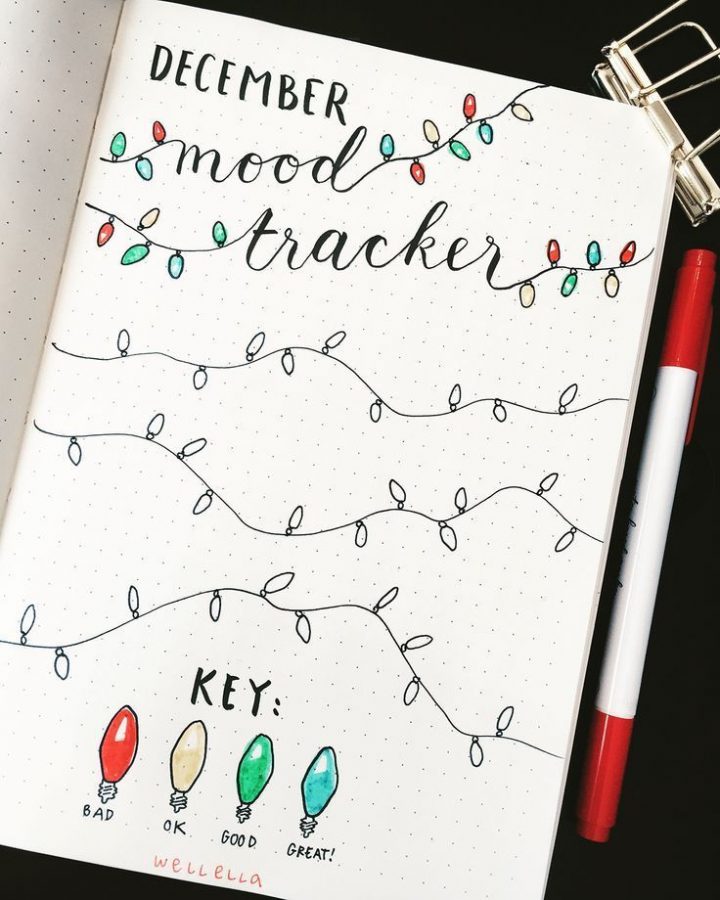 DECEMBER
mood
tracker
KEY:
BAD
OK
GOOD
GREAT!
wellella